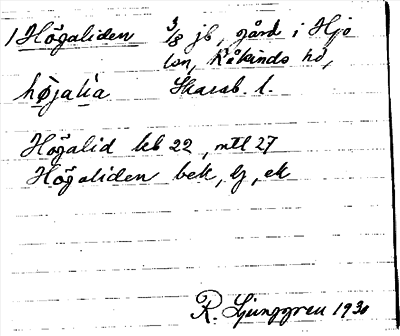 1 Högaliden 3/8 jb, gård i Hjo
lsn, Kåkinds hd,
højalia Skarab. l.
Högalid kb 22, mtl 27
Högaliden bek, lj, ek
R. Ljunggren 1930